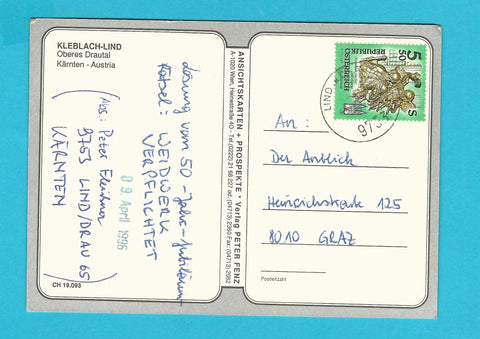 KLEBLACH-LIND
Oberes Drautal
Kärnten - Austria
Lösung vom 50-Jahr-Jubiläum
Rätsel: WEIDWERK
VERPFLICHTET
09. April 1996
(Abs: Peter
9753 LIND/DRAU 65
KÄRNTEN
CH 19.093
ANSICHTSKARTEN + PROSPEKTE * Verlag PETER FENZ
A-1020 Wien, Heinestraße 40 - Tel. (0222) 21 68 227 od. (04713) 2360 Fax: (04713) 2082
5
50
S
REPUBLIK
ÖSTERREICH
LIND
9753
An:
Der Anblick
Heinrichstraße 125
8010 GRAZ
Postleitzahl